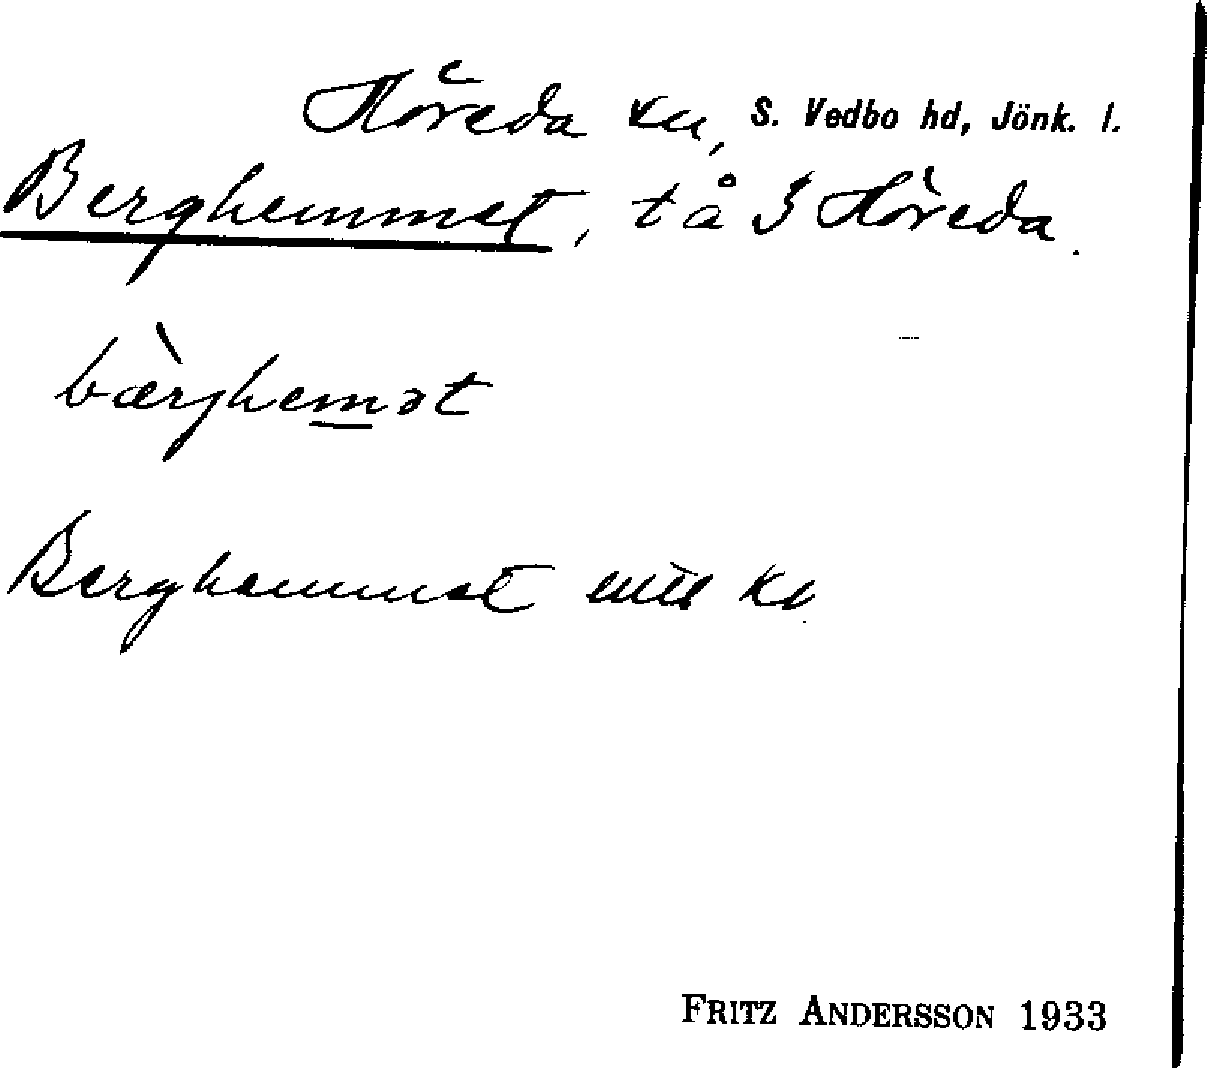 Höreda sn, S. Vedbo hd, Jönk. l.
Berghemmet, tå 3 Höreda.
bærghemət
Berghemmet enl ka
FRITZ ANDERSSON 1933